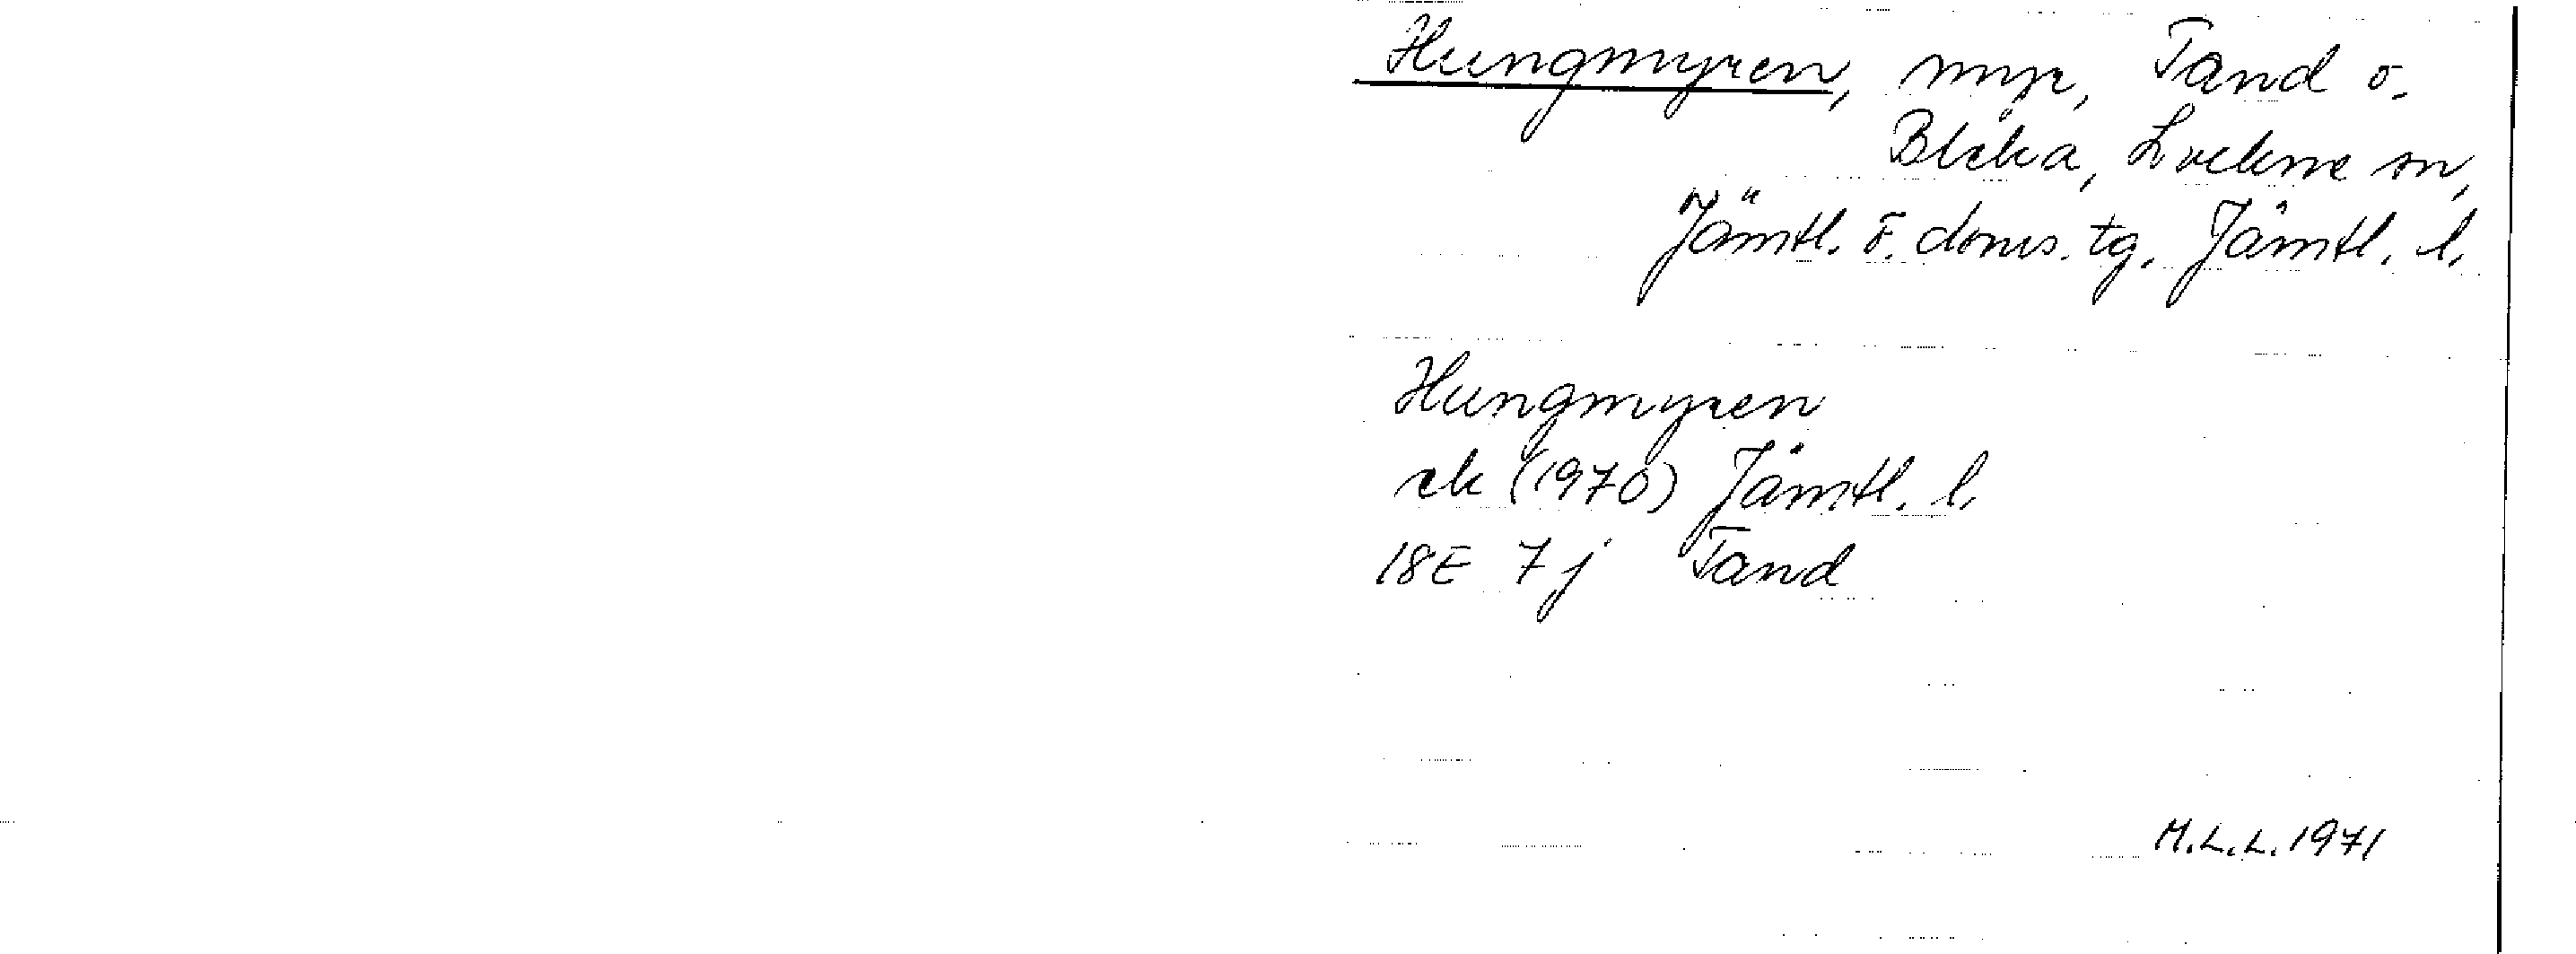 Hungmyren, myr, Tand o.
Bleka, Lockne sn,
Jämtl. ö. doms. tg. Jämtl. l.
Hungmyren
ek (1970) Jämtl. l.
18E 7j Tand
M.L.L. 1971